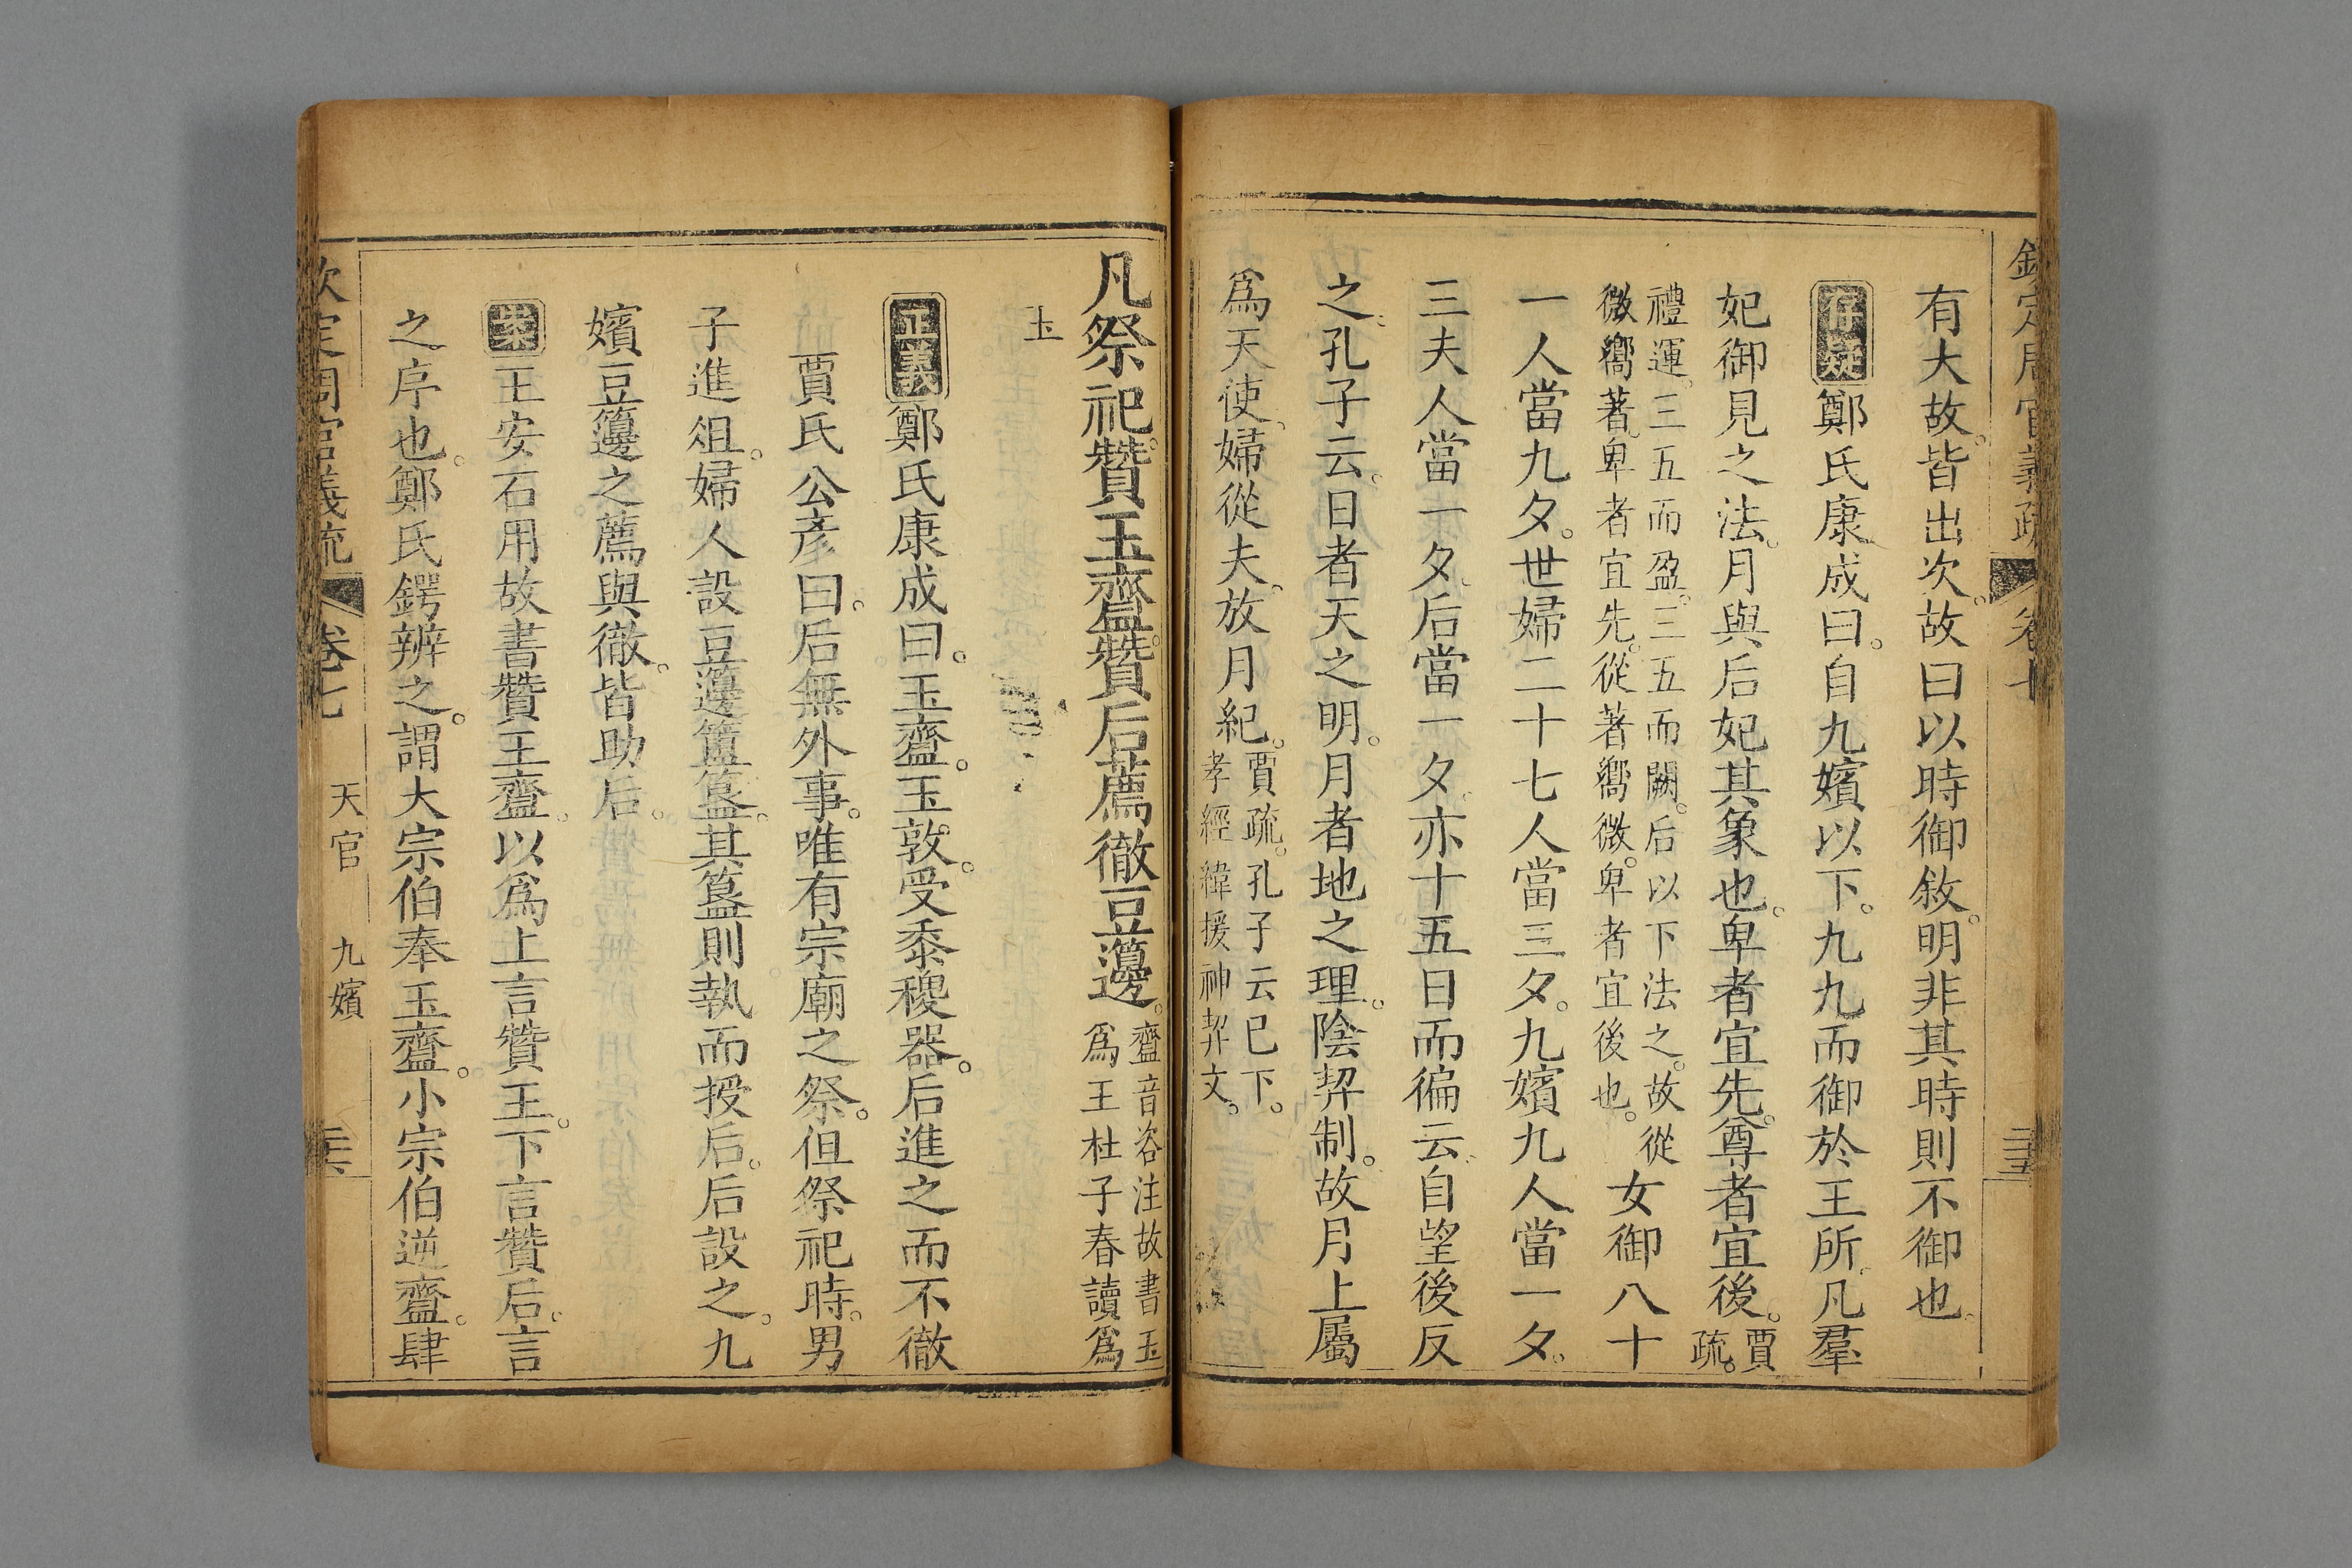 欽定周官義疏 卷七 三五
有大故。皆出次。故曰以時御敘。明非其時則不御也。
存疑 鄭氏康成曰。自九嬪以下。九九而御於王所。凡羣
妃御見之法。月與后妃其象也。卑者宜先。尊者宜後。賈疏。
禮運。三五而盈。三五而闕。后以下法之。故從
微嚮著。卑者宜先。從著嚮微。卑者宜後也。
女御八十
一人當九夕。世婦二十七人當三夕。九嬪九人當一夕。
三夫人當一夕。后當一夕。亦十五日而徧云。自望後反
之。孔子云。日者天之明。月者地之理。陰契制。故月上屬
爲天使。婦從夫。放月紀。
賈疏。孔子云已下。
孝經緯援神契文。
凡祭祀。贊玉齍。贊后薦徹豆籩。
齍音咨注故書玉
爲王杜子春讀爲
玉
正義 鄭氏康成曰。玉齍。玉敦。受黍稷器。后進之而不徹
賈氏公彥曰。后無外事。唯有宗廟之祭。但祭祀時。男
子進俎。婦人設豆籩簠簋。其簋則執而授后。后設之。九
嬪豆籩之薦與徹。皆助后。
案 王安石用故書贊王齍。以爲上言贊王。下言贊后。言
之序也。鄭氏鍔辨之。謂大宗伯奉玉齍。小宗伯逆齍。肆
欽定周官義疏 卷七 天官 九嬪